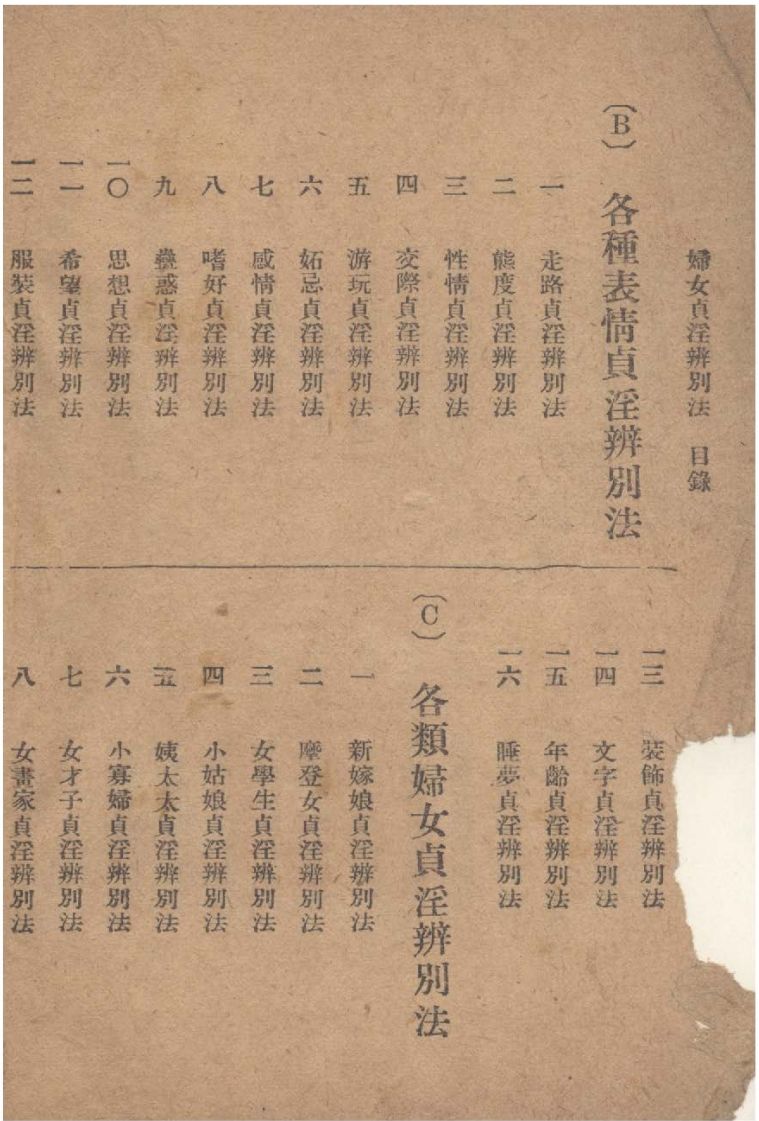 婦女貞淫辨別法　目錄
（B）　各種表情貞淫辨別法
一　走路貞淫辨別法
二　態度貞淫辨別法
三　性情貞淫辨別法
四　交際貞淫辨別法
五　游玩貞淫辨別法
六　妬忌貞淫辨別法
七　感情貞淫辨別法
八　嗜好貞淫辨別法
九　蠱惑貞淫辨別法
一〇　思想貞淫辨別法
一一　希望貞淫辨別法
一二　服裝貞淫辨別法
一三　裝飾貞淫辨別法
一四　文字貞淫辨別法
一五　年齡貞淫辨別法
一六　睡夢貞淫辨別法
（C）　各類婦女貞淫辨別法
一　新嫁娘貞淫辨別法
二　摩登女貞淫辨別法
三　女學生貞淫辨別法
四　小姑娘貞淫辨別法
五　姨太太貞淫辨別法
六　小寡婦貞淫辨別法
七　女才子貞淫辨別法
八　女畫家貞淫辨別法